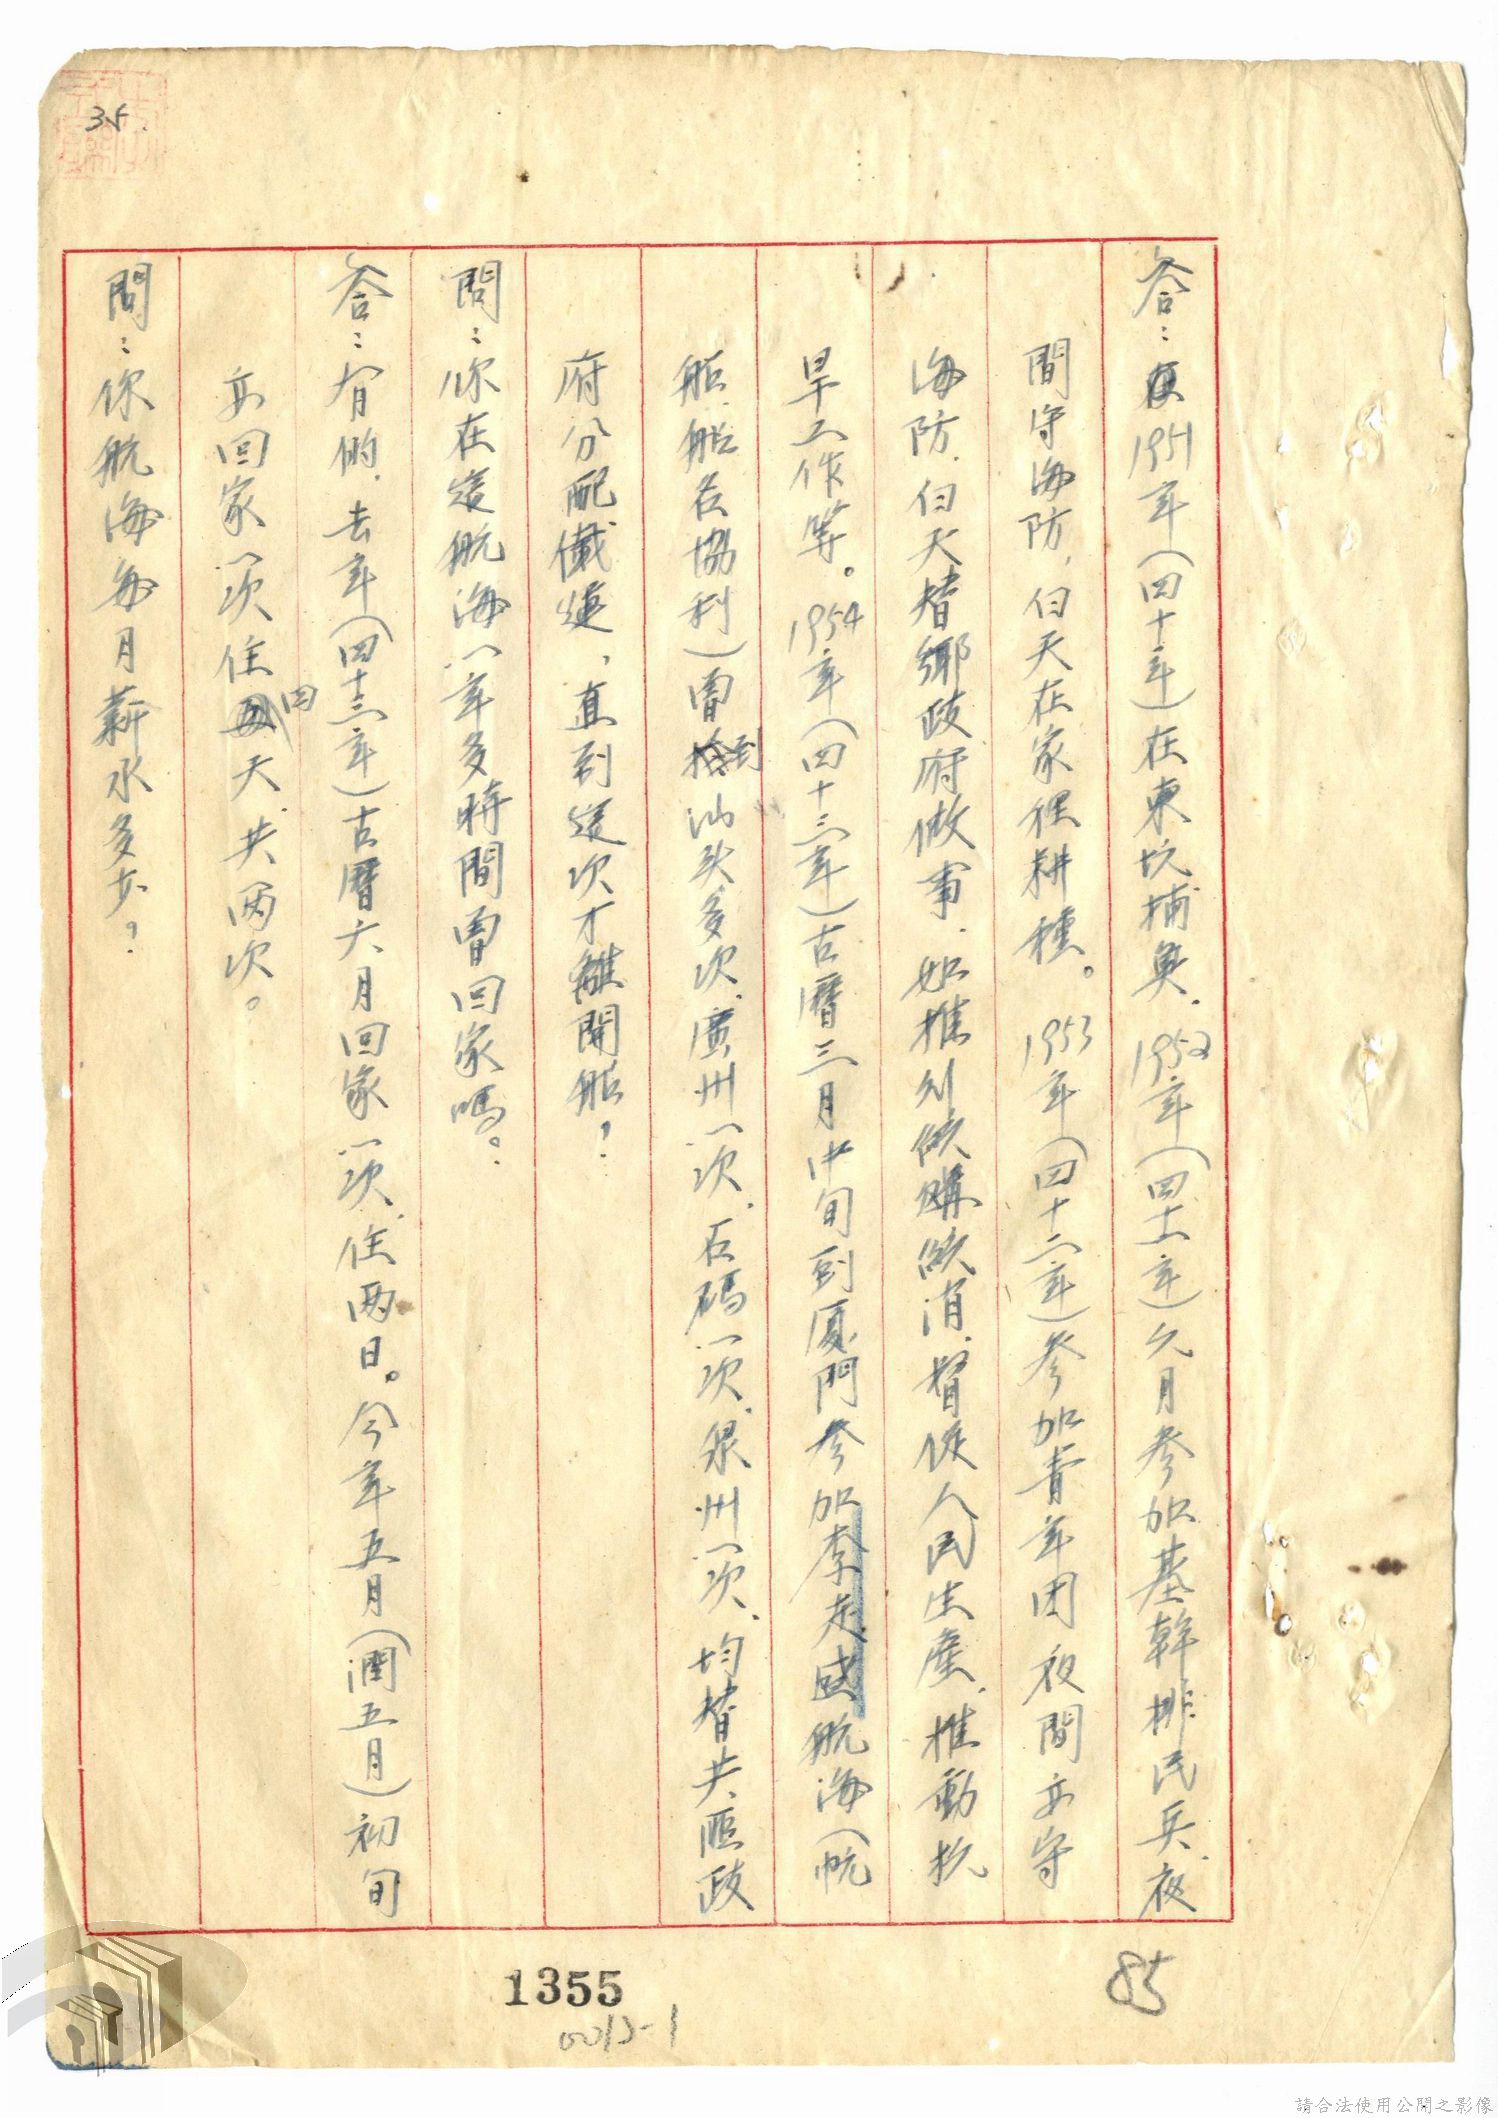 35.
答：在1951年（四十年）在東坑捕魚．1952年（四十一年）九月參加基幹排民兵．夜
間守海防，白天在家裡耕種。1953年（四十二年）參加青年团夜間亦守
海防．白天替鄉政府做事．如推利欲購欲消．督促人民生產．推動抗
旱工作等。1954年（四十三年）古曆三月中旬到厦門參加李走盛航海（帆
船．船名協利）曾到汕头多次．廣州一次．石碼一次．泉州一次．均替共匪政
府分配儎運，直到這次才離開船？
問：你在這航海一年多時間曾回家嗎。
答：有的．去年（四十三年）古曆六月回家一次．住两日。今年五月（潤五月）初旬
亦回家一次住四天．共兩次。
問：你航海每月薪水多少？
1355
0013-1
85
請合法使用公開之影像